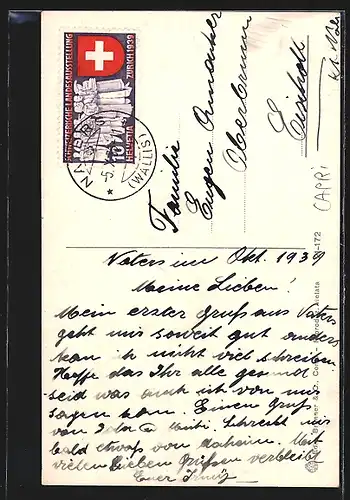 SCHWEIZERISCHE LANDESAUSSTELLUNG
ZÜRICH 1939
HELVETIA
10
NATERS
(WALLIS)
Familie
Eugen
Oberbrunn
Eischoll
CAPRI
Naters im Okt. 1939
Meine Lieben!
Mein erster Gruss aus Naters
geht mir soweit gut anders
kan ich nicht viel schreiben
Hoffe das Ihr alle gesund
seid was auch ich von mir
sagen kan. Einen Gruss
von Schreibt mir
bald etwas von daheim. Mit
vielen lieben Grüssen verbleibt
Euer